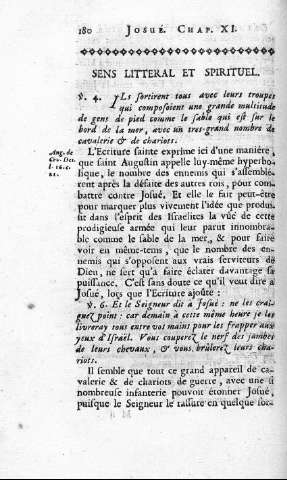 180 JOSUÉ. CHAP. XI.
SENS LITTERAL ET SPIRITUEL.
℣. 4. ILs sortirent tous avec leurs troupes
qui composoient une grande multitude
de gens de pied comme le sable qui est sur le
bord de la mer, avec un tres-grand nombre de
cavalerie & de chariots.
L'Ecriture sainte exprime ici d'une maniére,
que saint Augustin appelle luy-même hyperbo-
lique, le nombre des ennemis qui s'assemblé-
rent aprés la défaite des autres rois, pour com-
battre contre Josué, Et elle le fait peut-être
pour marquer plus vivement l'idée que produi-
soit dans l'esprit des Israelites la vûe de cette
prodigieuse armée qui leur parut innombra-
ble comme le sable de la mer, & pour faire
voir en même-tems, que le nombre des en-
nemis qui s'opposent aux vrais serviteurs de
Dieu, ne sert qu'à faire éclater davantage sa
puissance. C'est sans doute ce qu'il veut dire à
Josué, lors que l'Ecriture ajoûte :
℣. 6. Et le Seigneur dit à Josué : ne les crai-
gnez point : car demain à cette même heure je les
livreray tous entre vos mains pour les frapper aux
yeux d'Israël. Vous couperez le nerf des jambes
de leurs chevaux, & vous brûlerez leurs cha-
riots.
Il semble que tout ce grand appareil de ca-
valerie & de chariots de guerre, avec une si
nombreuse infanterie pouvoit étonner Josué,
puisque le Seigneur le rassure en quelque sor-
Aug. de